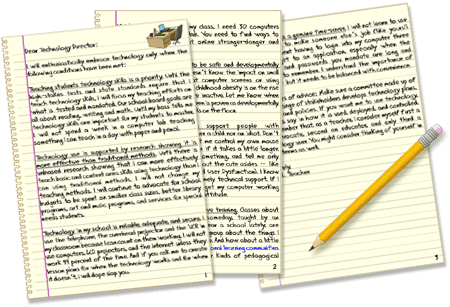 Dear Technology Director:
I will enthusiastically embrace technology only when the
following conditions have been met:
Teaching students technology skills is a priority. Until the
state tests and state standards require that I
teach technology skills, I will focus my teaching efforts on
what is tested and mandated. Our school board goals are
all about reading, writing and math. Until my boss tells me
technology skills are important for my students to master,
I will not spend a week in a computer lab teaching
something I can teach in a day with paper and pencil.
Technology use is supported by research showing it is
more effective than traditional methods. Until there is
research showing that I can more effectively
teach basic and content area skills using technology than
using traditional methods, I will not change my
teaching methods. I will continue to advocate for school
budgets to be spent on smaller class sizes, better library
programs, art and music programs, and services for special
needs students.
Technology in my school is reliable, adequate, and secure. I
use the telephone, the overhead projector and the VCR in
my classroom because I can count on them working. I will not
use computers, LCD projectors, and the Internet unless they
work 99 percent of the time. And if you ask me to create
lesson plans for when the technology works and for when
it doesn't, I will dope slap you.
1
my class, I need 30 computers
You need to find ways to
online stranger-danger and
to be safe and developmentally
know the impact on small
if computer screens or using
childhood obesity is on the rise
Let me know when
is proven as developmentally
the floor.
support people with
a child nor an idiot. Don't
me control my own mouse
if it takes a little longer
something, and tell me only
the cute asides - like
User Dysfunction). I know
technical support. If I
get my computer working
attitude.
training. Classes about
someday, taught by an
for a school lately, are
group about the things I
And how about a little
learning communities
kinds of pedagogical
2
is a genuine time-saver. I will not learn to use
to make someone else's job (like yours)
having to log into my computer
or an application, especially when the
and passwords you mandate are long and
to remember. I understand the importance of
it needs to be balanced with convenience.
of advice: Make sure a committee made up of
of stakeholders develops technology plans,
policies. If you want me to use technology
say in how it is deployed, and controlled.
that as a teacher, I consider myself a
advocate second, an educator, and only third a
technology user. You might consider thinking of yourself in
terms as well.
Teacher
3